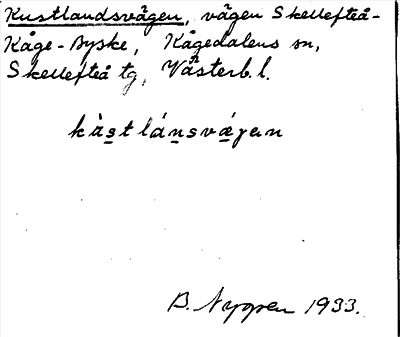 Kustlandsvägen, vägen Skellefteå-
Kåge-Byske, Kågedalens sn,
Skellefteå tg, Västerb. l.
kàstlánsvǽgen
B. Nygren 1933.